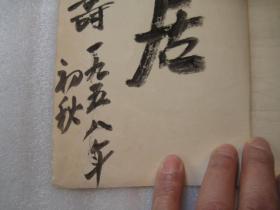 居
詩 一九五八年
初秋